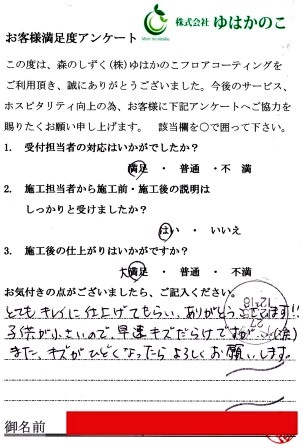 Mori no sizuku
株式会社 ゆはかのこ
お客様満足度アンケート
この度は、森のしずく(株)ゆはかのこフロアコーティングを
ご利用頂き、誠にありがとうございました。今後のサービス、
ホスピタリティ向上の為、お客様に下記アンケートへご協力を
賜りたくお願い申し上げます。 該当欄を〇で囲って下さい。
1. 受付担当者の対応はいかがでしたか?
満足 ・ 普通 ・不 満
2. 施工担当者から施工前・施工後の説明は
しっかりと受けましたか?
はい ・ いいえ
3. 施工後の仕上がりはいかがですか?
大満足 ・ 普通 ・ 不満
お気付きの点がございましたら、ご記入ください。
とてもキレイに仕上げてもらい、ありがとうございます!!
子供が小さいので、早速キズだらけですが…(笑)
また、キズがひどくなったらよろしくお願いします。
12-18
御名前